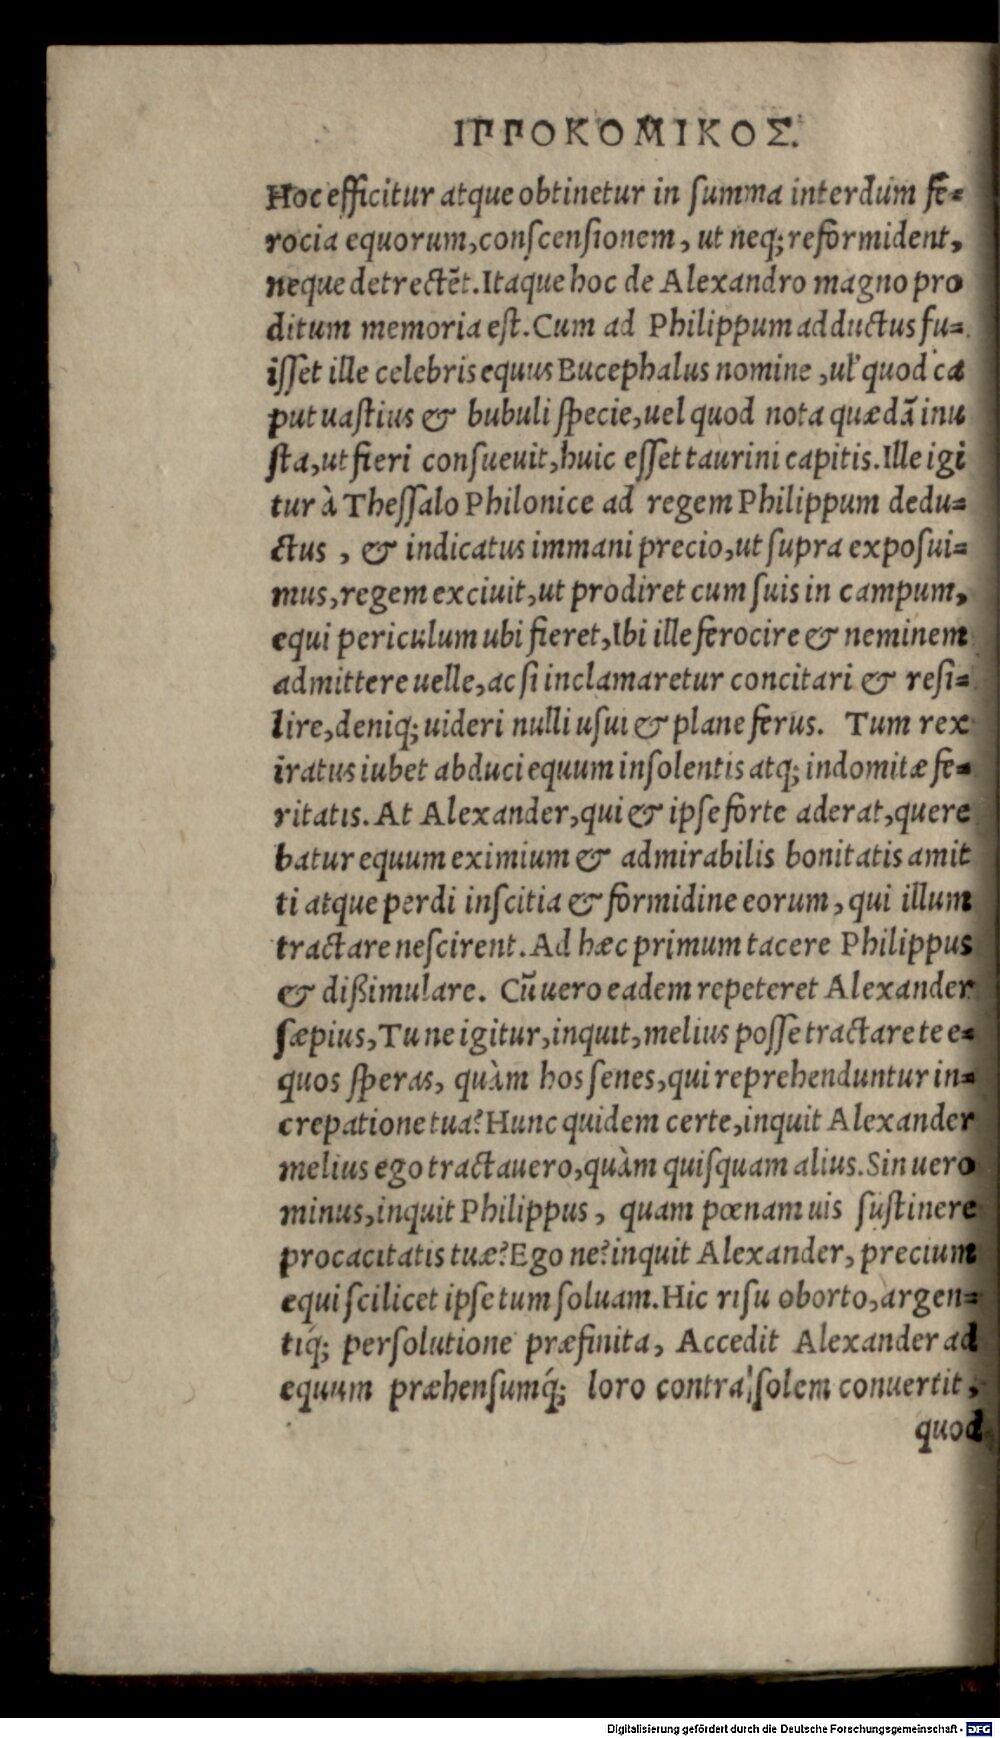 ΙΠΠΟΚΟΜΙΚΟΣ.
Hoc efficitur atque obtinetur in summa interdum fe-
rocia equorum, conscensionem, ut neq; reformident,
neque detrectēt. Itaque hoc de Alexandro magno pro
ditum memoria est. Cum ad Philippum adductus fu-
isset ille celebris equus Bucephalus nomine, ul' quod ca
put uastius & bubuli specie, uel quod nota quædā inu
sta, ut fieri consueuit, huic esset taurini capitis. Ille igi
tur à Thessalo Philonice ad regem Philippum dedu-
ctus, & indicatus immani precio, ut supra exposui-
mus, regem exciuit, ut prodiret cum suis in campum,
equi periculum ubi fieret, Ibi ille ferocire & neminem
admittere uelle, ac si inclamaretur concitari & resi-
lire, deniq; uideri nulli usui & plane ferus. Tum rex
iratus iubet abduci equum insolentis atq; indomitæ fe-
ritatis. At Alexander, qui & ipse forte aderat, quere
batur equum eximium & admirabilis bonitatis amit
ti atque perdi inscitia & formidine eorum, qui illum
tractare nescirent. Ad hæc primum tacere Philippus
& dißimulare. Cū uero eadem repeteret Alexander
sæpius, Tu ne igitur, inquit, melius posse tractare te e-
quos speras, quàm hos senes, qui reprehenduntur in-
crepatione tua? Hunc quidem certe, inquit Alexander
melius ego tractauero, quàm quisquam alius. Sin uero
minus, inquit Philippus, quam pœnam uis sustinere
procacitatis tuæ? Ego ne? inquit Alexander, precium
equi scilicet ipse tum soluam. Hic risu oborto, argen-
tiq́; persolutione præfinita, Accedit Alexander ad
equum præhensumq́; loro contra solem conuertit,
quod
Digitalisierung gefördert durch die Deutsche Forschungsgemeinschaft - DFG